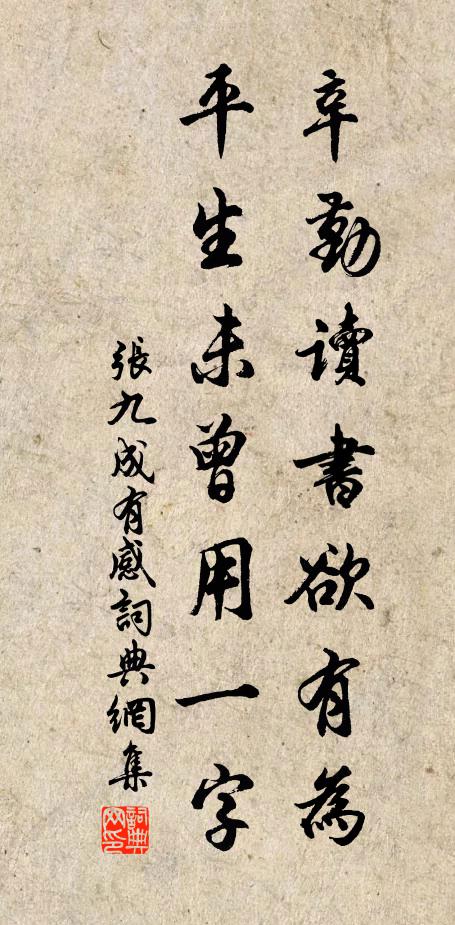 辛勤讀書欲有為
平生未曾用一字
張九成有感詞典網集
詞典網印